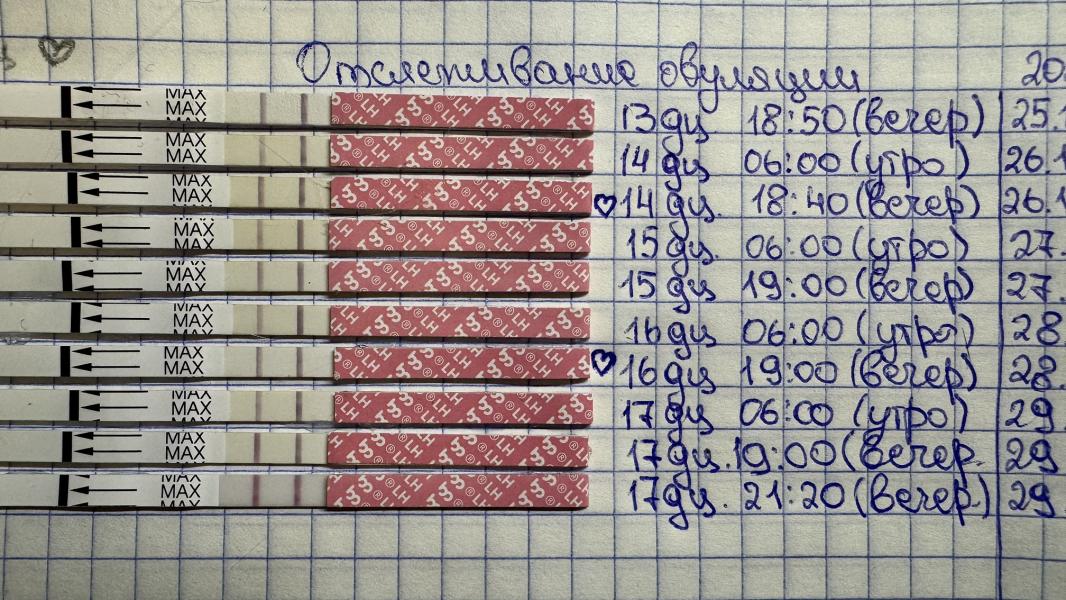 Отслеживание овуляции 20
MAX MAX 13 дц 18:50 (вечер) 25.
MAX MAX 14 дц 06:00 (утро) 26.
MAX MAX 14 дц. 18:40 (вечер) 26.
MAX MAX 15 дц. 06:00 (утро) 27.
MAX MAX 15 дц 19:00 (вечер) 27.
MAX MAX 16 дц 06:00 (утро) 28
MAX MAX 16 дц 19:00 (вечер) 28.
MAX MAX 17 дц 06:00 (утро) 29.
MAX MAX 17 дц. 19:00 (вечер. 29
MAX MAX MAX 17 дц. 21:20 (вечер.) 29.